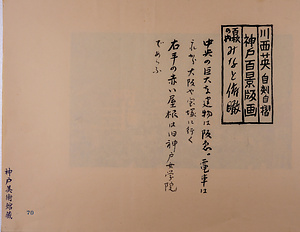 川西英 自刻自摺
神戸百景版画
百景の内 みなと俯瞰
中央の巨大な建物は阪急。電車は
これから大阪や宝塚に行く
右手の赤い屋根は旧神戸女学院
であらふ
神戸美術館蔵
78